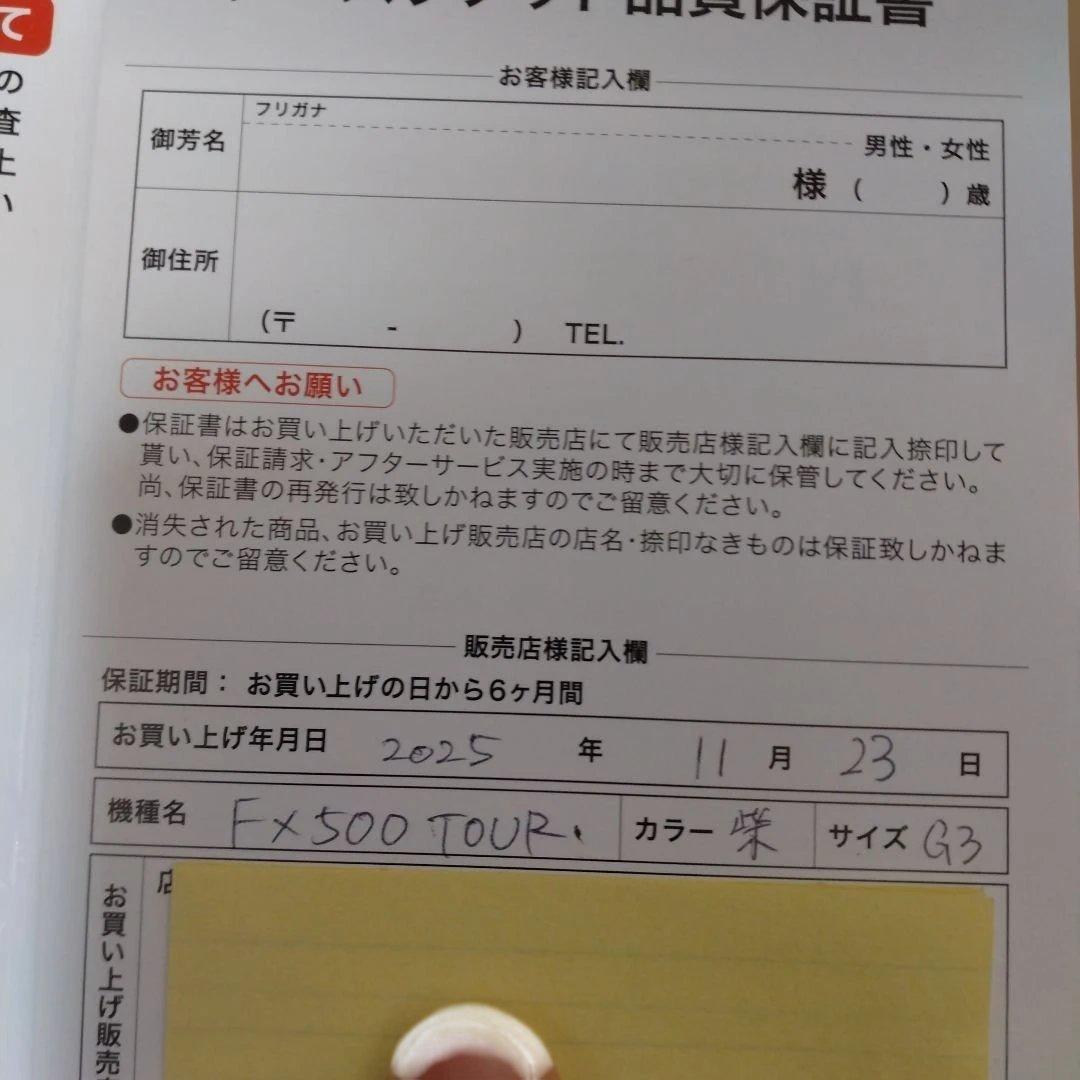 て
の
査
上
い
品質保証書
お客様記入欄
御芳名
フリガナ
男性・女性
様 ( )歳
御住所
(〒 - ) TEL.
お客様へお願い
●保証書はお買い上げいただいた販売店にて販売店様記入欄に記入捺印して
貰い、保証請求・アフターサービス実施の時まで大切に保管してください。
尚、保証書の再発行は致しかねますのでご留意ください。
●消失された商品、お買い上げ販売店の店名・捺印なきものは保証致しかねま
すのでご留意ください。
販売店様記入欄
保証期間: お買い上げの日から6ヶ月間
お買い上げ年月日 2025 年 11 月 23 日
機種名 FX500 TOUR. カラー 柴 サイズ G3
お買い上げ販売
店